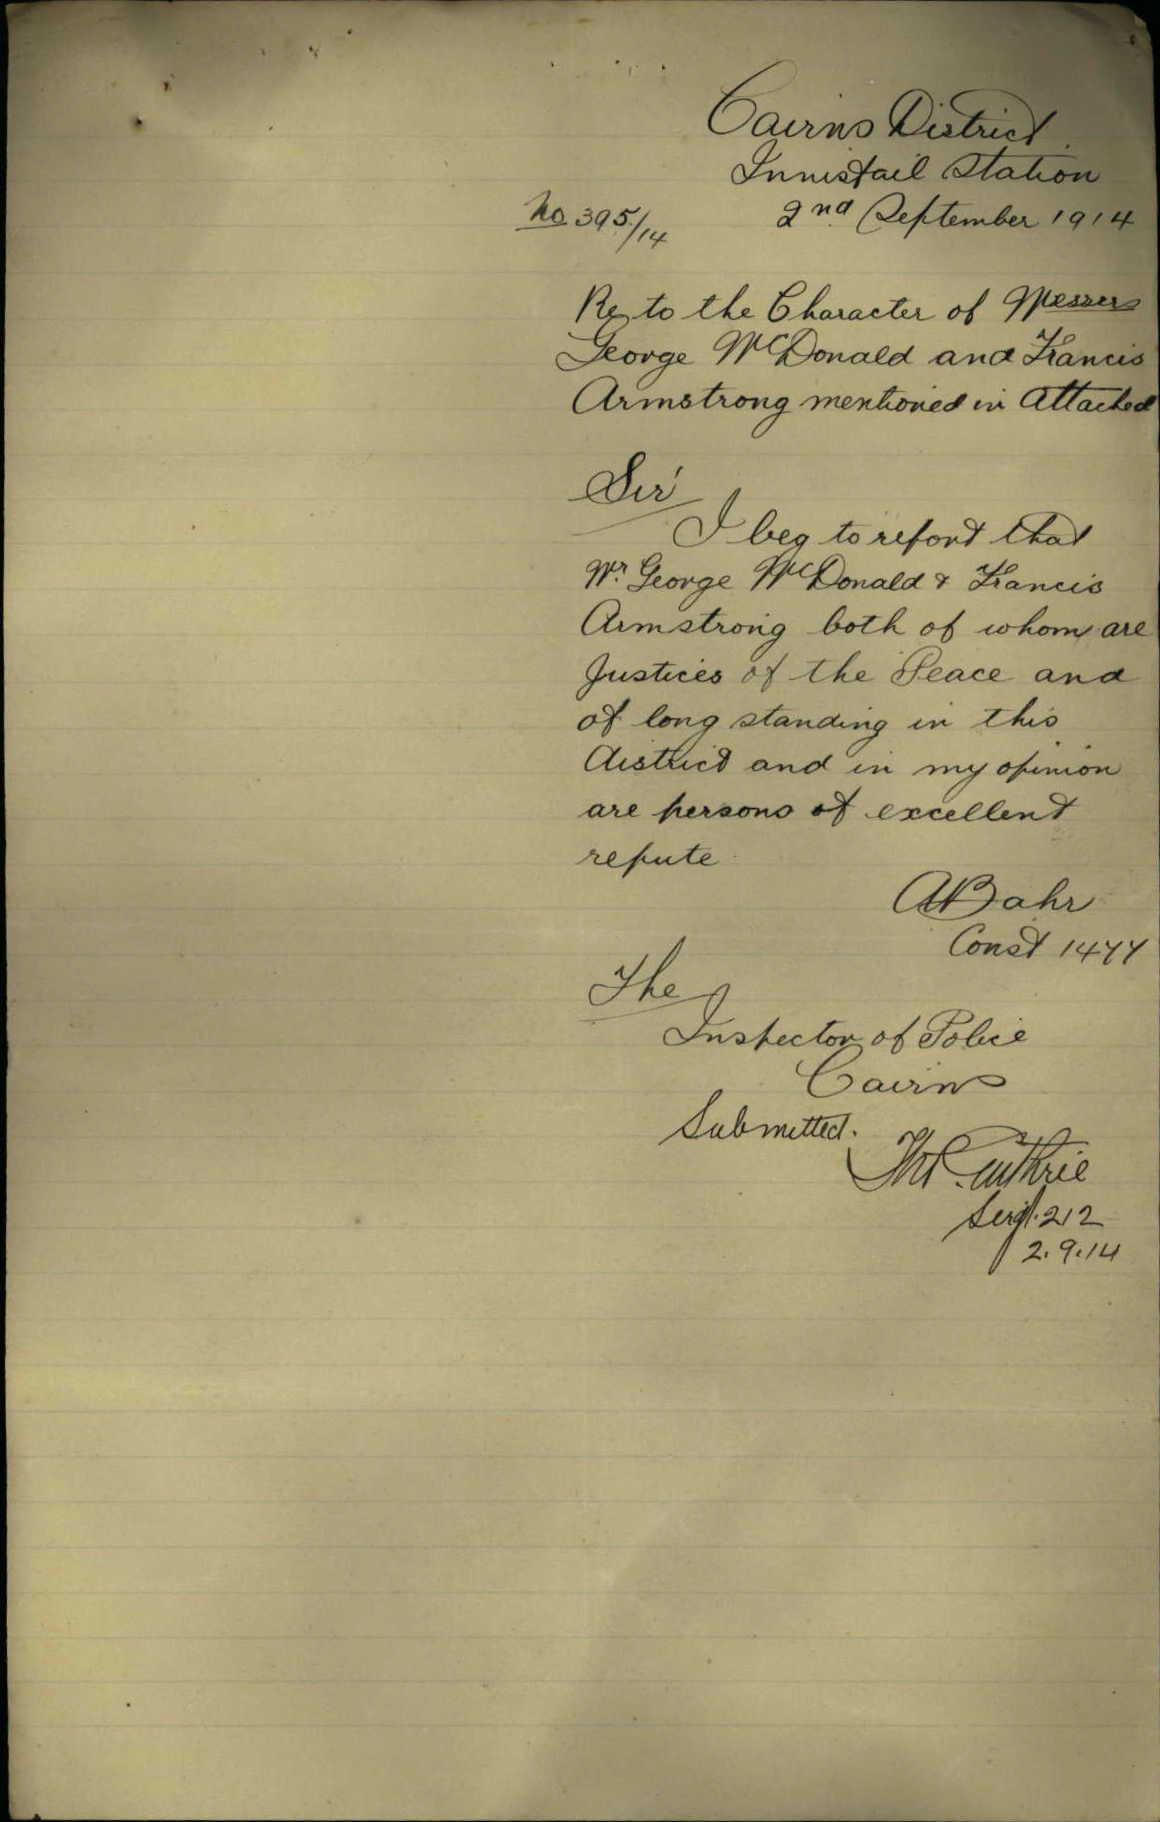 Cairns District
Innisfail Station
No 395/14 2nd September 1914
Re to the Character of Messers
George McDonald and Francis
Armstrong mentioned in Attached
Sir
I beg to report that
Mr. George McDonald & Francis
Armstrong both of whom are
Justices of the Peace and
of long standing in this
district and in my opinion
are persons of excellent
repute
A Bahr
Const 1477
The
Inspector of Police
Cairns
Submitted.
Guthrie
Sergt. 212
2.9.14